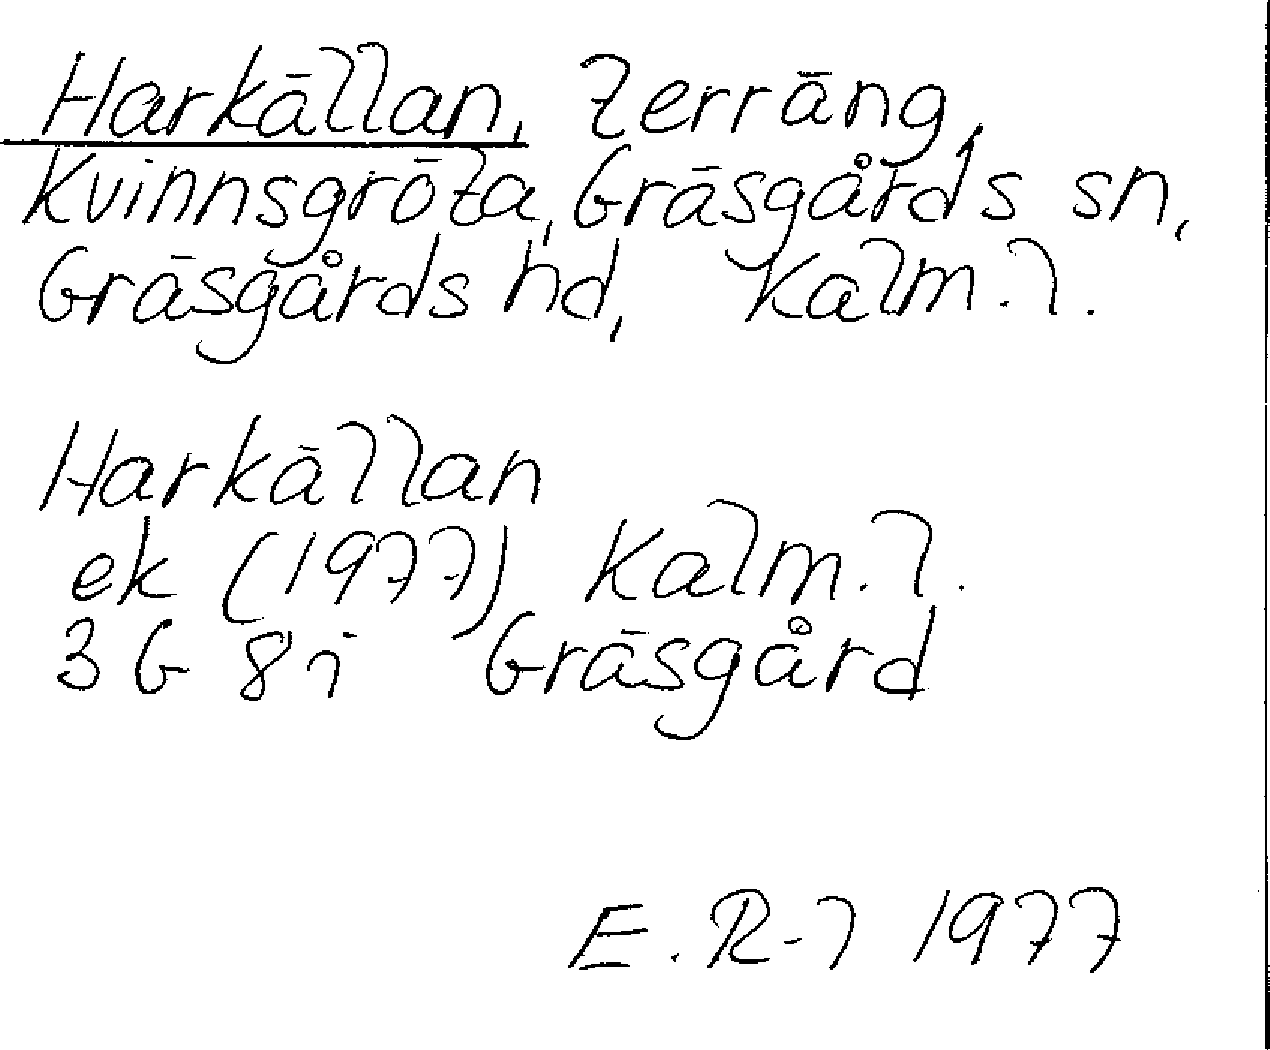 Harkällan, terräng,
Kvinnsgröta, Gräsgårds sn,
Gräsgårds hd, Kalm. l.
Harkällan
ek (1977) Kalm. l.
3 G 8 i Gräsgård
E. R-l 1977